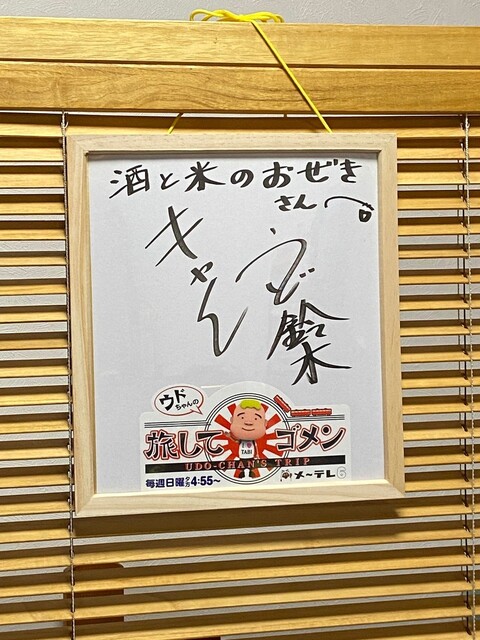 酒と米のおぜき
さん
キャイ〜ン
ウド鈴木
ウド
ちゃんの
旅して
ゴメン
TABI
UDO-CHAN'S TRIP
毎週日曜夕方4:55〜
メ〜テレ6